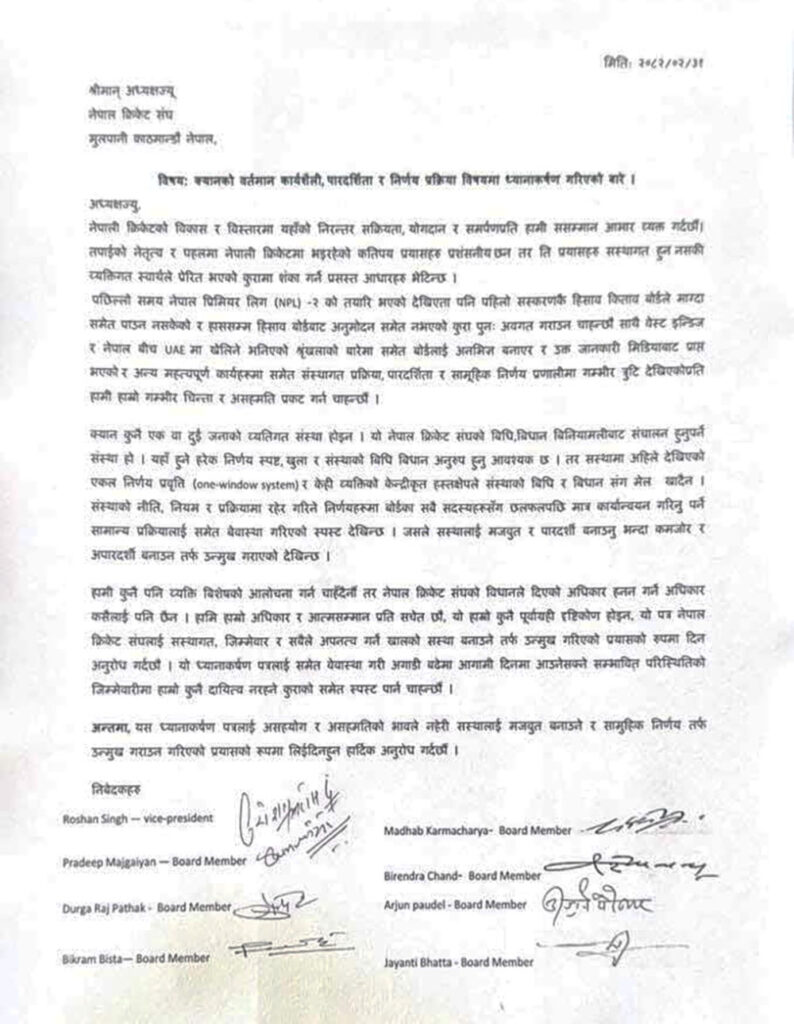 मिति: २०८२/०२/३१
श्रीमान् अध्यक्षज्यू
नेपाल क्रिकेट संघ
मुलपानी काठमान्डौ नेपाल,
विषय: क्यानको वर्तमान कार्यशैली, पारदर्शिता र निर्णय प्रक्रिया विषयमा ध्यानाकर्षण गरिएको बारे ।
अध्यक्षज्यु,
नेपाली क्रिकेटको विकास र विस्तारमा यहाँको निरन्तर सक्रियता, योगदान र समर्पणप्रति हामी ससम्मान आभार व्यक्त गर्दछौं।
तपाईको नेतृत्व र पहलमा नेपाली क्रिकेटमा भइरहेको कतिपय प्रयासहरु प्रशंसनीय छन तर ति प्रयासहरु सस्थागत हुन नसकी
व्यक्तिगत स्वार्थले प्रेरित भएको कुरामा शंका गर्ने प्रसस्त आधारहरु भेटिन्छ ।
पछिल्लो समय नेपाल प्रिमियर लिग (NPL) -२ को तयारि भएको देखिएता पनि पहिलो सस्करणकै हिसाव किताव बोर्डले माग्दा
समेत पाउन नसकेको र हालसम्म हिसाव बोर्डबाट अनुमोदन समेत नभएको कुरा पुनः अवगत गराउन चाहन्छौं साथै वेस्ट इन्डिज
र नेपाल बीच UAE मा खेलिने भनिएको श्रृंखलाको बारेमा समेत बोर्डलाई अनभिज्ञ बनाएर र उक्त जानकारी मिडियाबाट प्राप्त
भएको र अन्य महत्वपूर्ण कार्यहरुमा समेत संस्थागत प्रक्रिया, पारदर्शिता र सामूहिक निर्णय प्रणालीमा गम्भीर त्रुटि देखिएकोप्रति
हामी हाम्रो गम्भीर चिन्ता र असहमति प्रकट गर्न चाहन्छौं ।
क्यान कुनै एक वा दुई जनाको व्यतिगत संस्था होइन । यो नेपाल क्रिकेट संघको विधि,विधान बिनियामलीबाट संचालन हुनुपर्ने
संस्था हो । यहाँ हुने हरेक निर्णय स्पष्ट, खुला र संस्थाको विधि विधान अनुरुप हुनु आवश्यक छ । तर सस्थामा अहिले देखिएको
एकल निर्णय प्रवृति (one-window system) र केही व्यक्तिको केन्द्रीकृत हस्तक्षेपले संस्थाको विधि र विधान संग मेल खादैन ।
संस्थाको नीति, नियम र प्रक्रियामा रहेर गरिने निर्णयहरुमा बोर्डका सवै सदस्यहरुसँग छलफलपछि मात्र कार्यान्वयन गरिनु पर्ने
सामान्य प्रक्रियालाई समेत बेवास्था गरिएको स्पस्ट देखिन्छ । जसले सस्थालाई मजवुत र पारदर्शी बनाउनु भन्दा कमजोर र
अपारदर्शी बनाउन तर्फ उन्मुख गराएको देखिन्छ ।
हामी कुनै पनि व्यक्ति बिशेषको आलोचना गर्न चाहँदैनौं तर नेपाल क्रिकेट संघको विधानले दिएको अधिकार हनन गर्न अधिकार
कसैलाई पनि छैन । हामि हाम्रो अधिकार र आत्मसम्मान प्रति सचेत छौ, यो हाम्रो कुनै पूर्वाग्रही दृष्टिकोण होइन, यो पत्र नेपाल
क्रिकेट संघलाई सस्थागत, जिम्मेवार र सबैले अपनत्व गर्ने खालको सस्था बनाउने तर्फ उन्मुख गरिएको प्रयासको रुपमा दिन
अनुरोध गर्दछौ । यो ध्यानाकर्षण पत्रलाई समेत बेवास्था गरी अगाडी बढेमा आगामी दिनमा आउनेसक्ने सम्भावित परिस्थितिको
जिम्मेवारीमा हाम्रो कुनै दायित्व नरहने कुराको समेत स्पस्ट पार्न चाहन्छौं ।
अन्तमा, यस ध्यानाकर्षण पत्रलाई असहयोग र असहमतिको भावले नहेरी सस्थालाई मजवुत बनाउने र सामुहिक निर्णय तर्फ
उन्मुख गराउन गरिएको प्रयासको रूपमा लिईदिनहुन हार्दिक अनुरोध गर्दछौं ।
निवेदकहरु
Roshan Singh – vice-president
Madhab Karmacharya- Board Member
Pradeep Majgaiyan – Board Member
Birendra Chand- Board Member
Durga Raj Pathak - Board Member
Arjun paudel - Board Member
Bikram Bista– Board Member
Jayanti Bhatta - Board Member